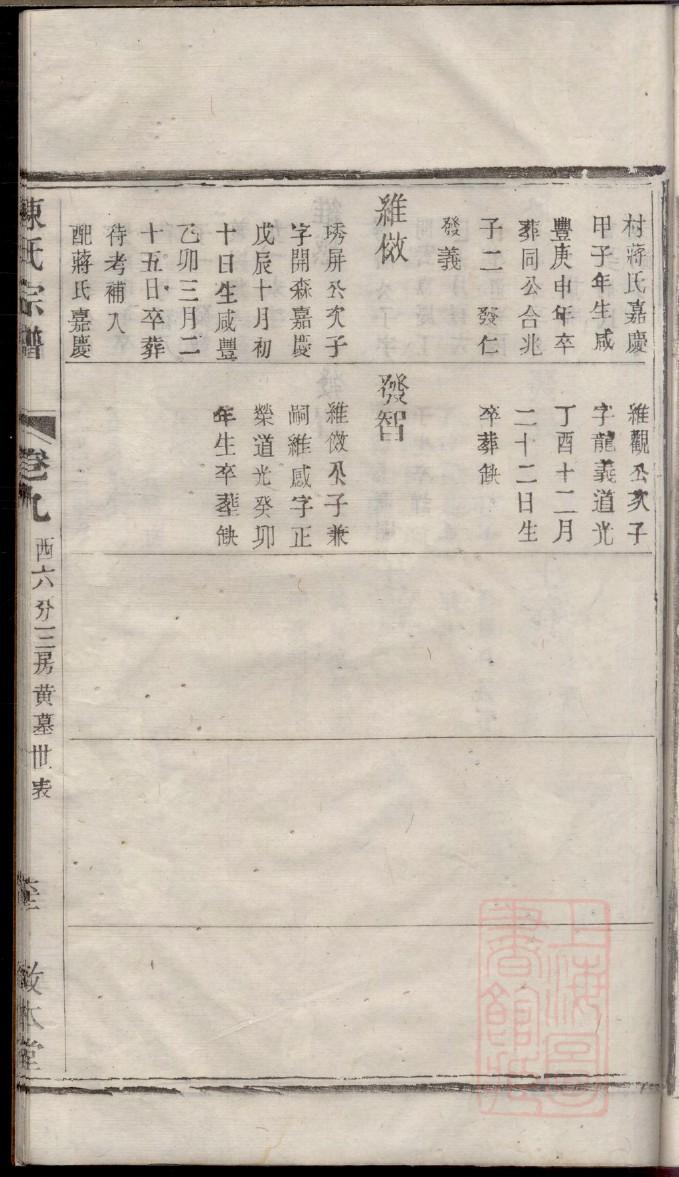 村蔣氏嘉慶
甲子年生咸
豐庚申年卒
葬同公合兆
子二 發仁
發義
維倣
琇屏公次子
字開森嘉慶
戊辰十月初
十日生咸豐
乙卯三月二
十五日卒葬
待考補入
配蔣氏嘉慶
維觀公次子
字龍義道光
丁酉十二月
二十二日生
卒葬缺
發智
維倣公子兼
嗣維感字正
榮道光癸卯
年生卒葬缺
陳氏宗譜
卷九
西六分三房黃墓世表
敦本堂
上海圖書館藏